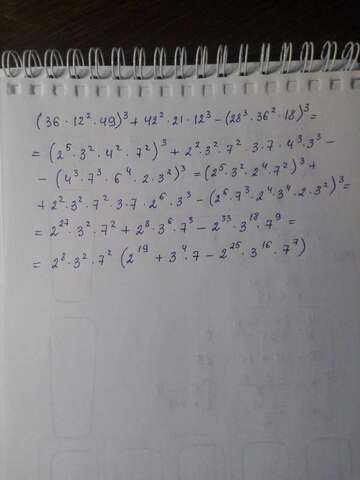 (36 · 12² · 49)³ + 42² · 21 · 12³ − (28³ · 36² · 18)³ =
= (2⁵ · 3² · 4² · 7²)³ + 2² · 3² · 7² · 3 · 7 · 4³ · 3³ −
− (4³ · 7³ · 6⁴ · 2 · 3²)³ = (2⁵ · 3² · 2⁴ · 7²)³ +
+ 2² · 3² · 7² · 3 · 7 · 2⁶ · 3³ − (2⁶ · 7³ · 2⁴ 3⁴ · 2 · 3²)³ =
= 2²⁷ · 3² · 7² + 2⁸ · 3⁶ · 7³ − 2³³ · 3¹⁸ · 7⁹ =
= 2⁸ · 3² · 7² (2¹⁹ + 3⁴ · 7 − 2²⁵ · 3¹⁶ · 7⁷)